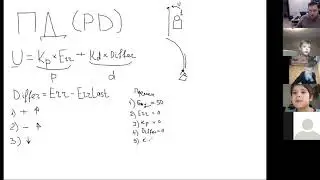 ПД (PD)
U = Kp × Err + Kd × Differ
p d
Differ = Err - ErrLast
1) + ↑
2) - ↑
3) ↓
1) = 50
2) Err = 0
3) Kp = 0
4) Differ = 0
5) K